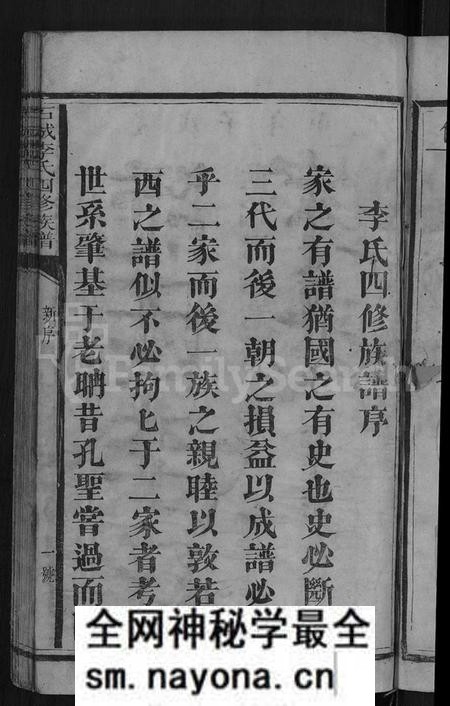 李氏四修族譜序
家之有譜猶國之有史也史必斷
三代而後一朝之損益以成譜必
乎二家而後一族之親睦以敦若
西之譜似不必拘匕于二家者考
世系肇基于老聃昔孔聖嘗過而
石城李氏四修族譜
新序
一號
FamilySearch
全网神秘学最全
sm.nayona.cn